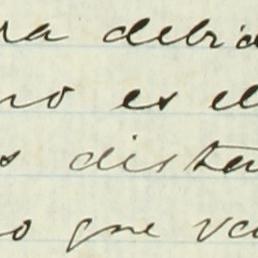 ra debid
no es el
s dista
o que va